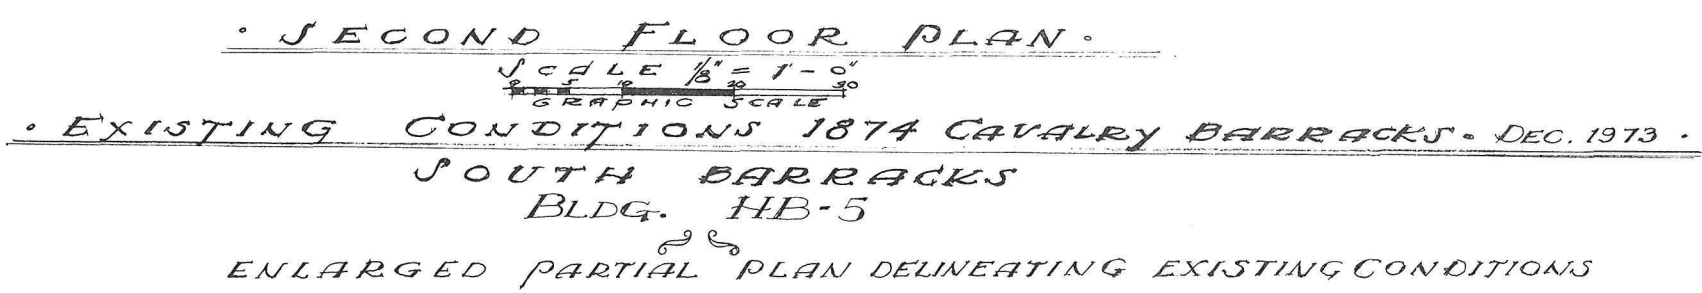 · SECOND FLOOR PLAN ·
SCALE 1/8" = 1'-0"
0 5 10 20 30
GRAPHIC SCALE
· EXISTING CONDITIONS 1874 CAVALRY BARRACKS · DEC. 1973 ·
SOUTH BARRACKS
BLDG. HB-5
ENLARGED PARTIAL PLAN DELINEATING EXISTING CONDITIONS